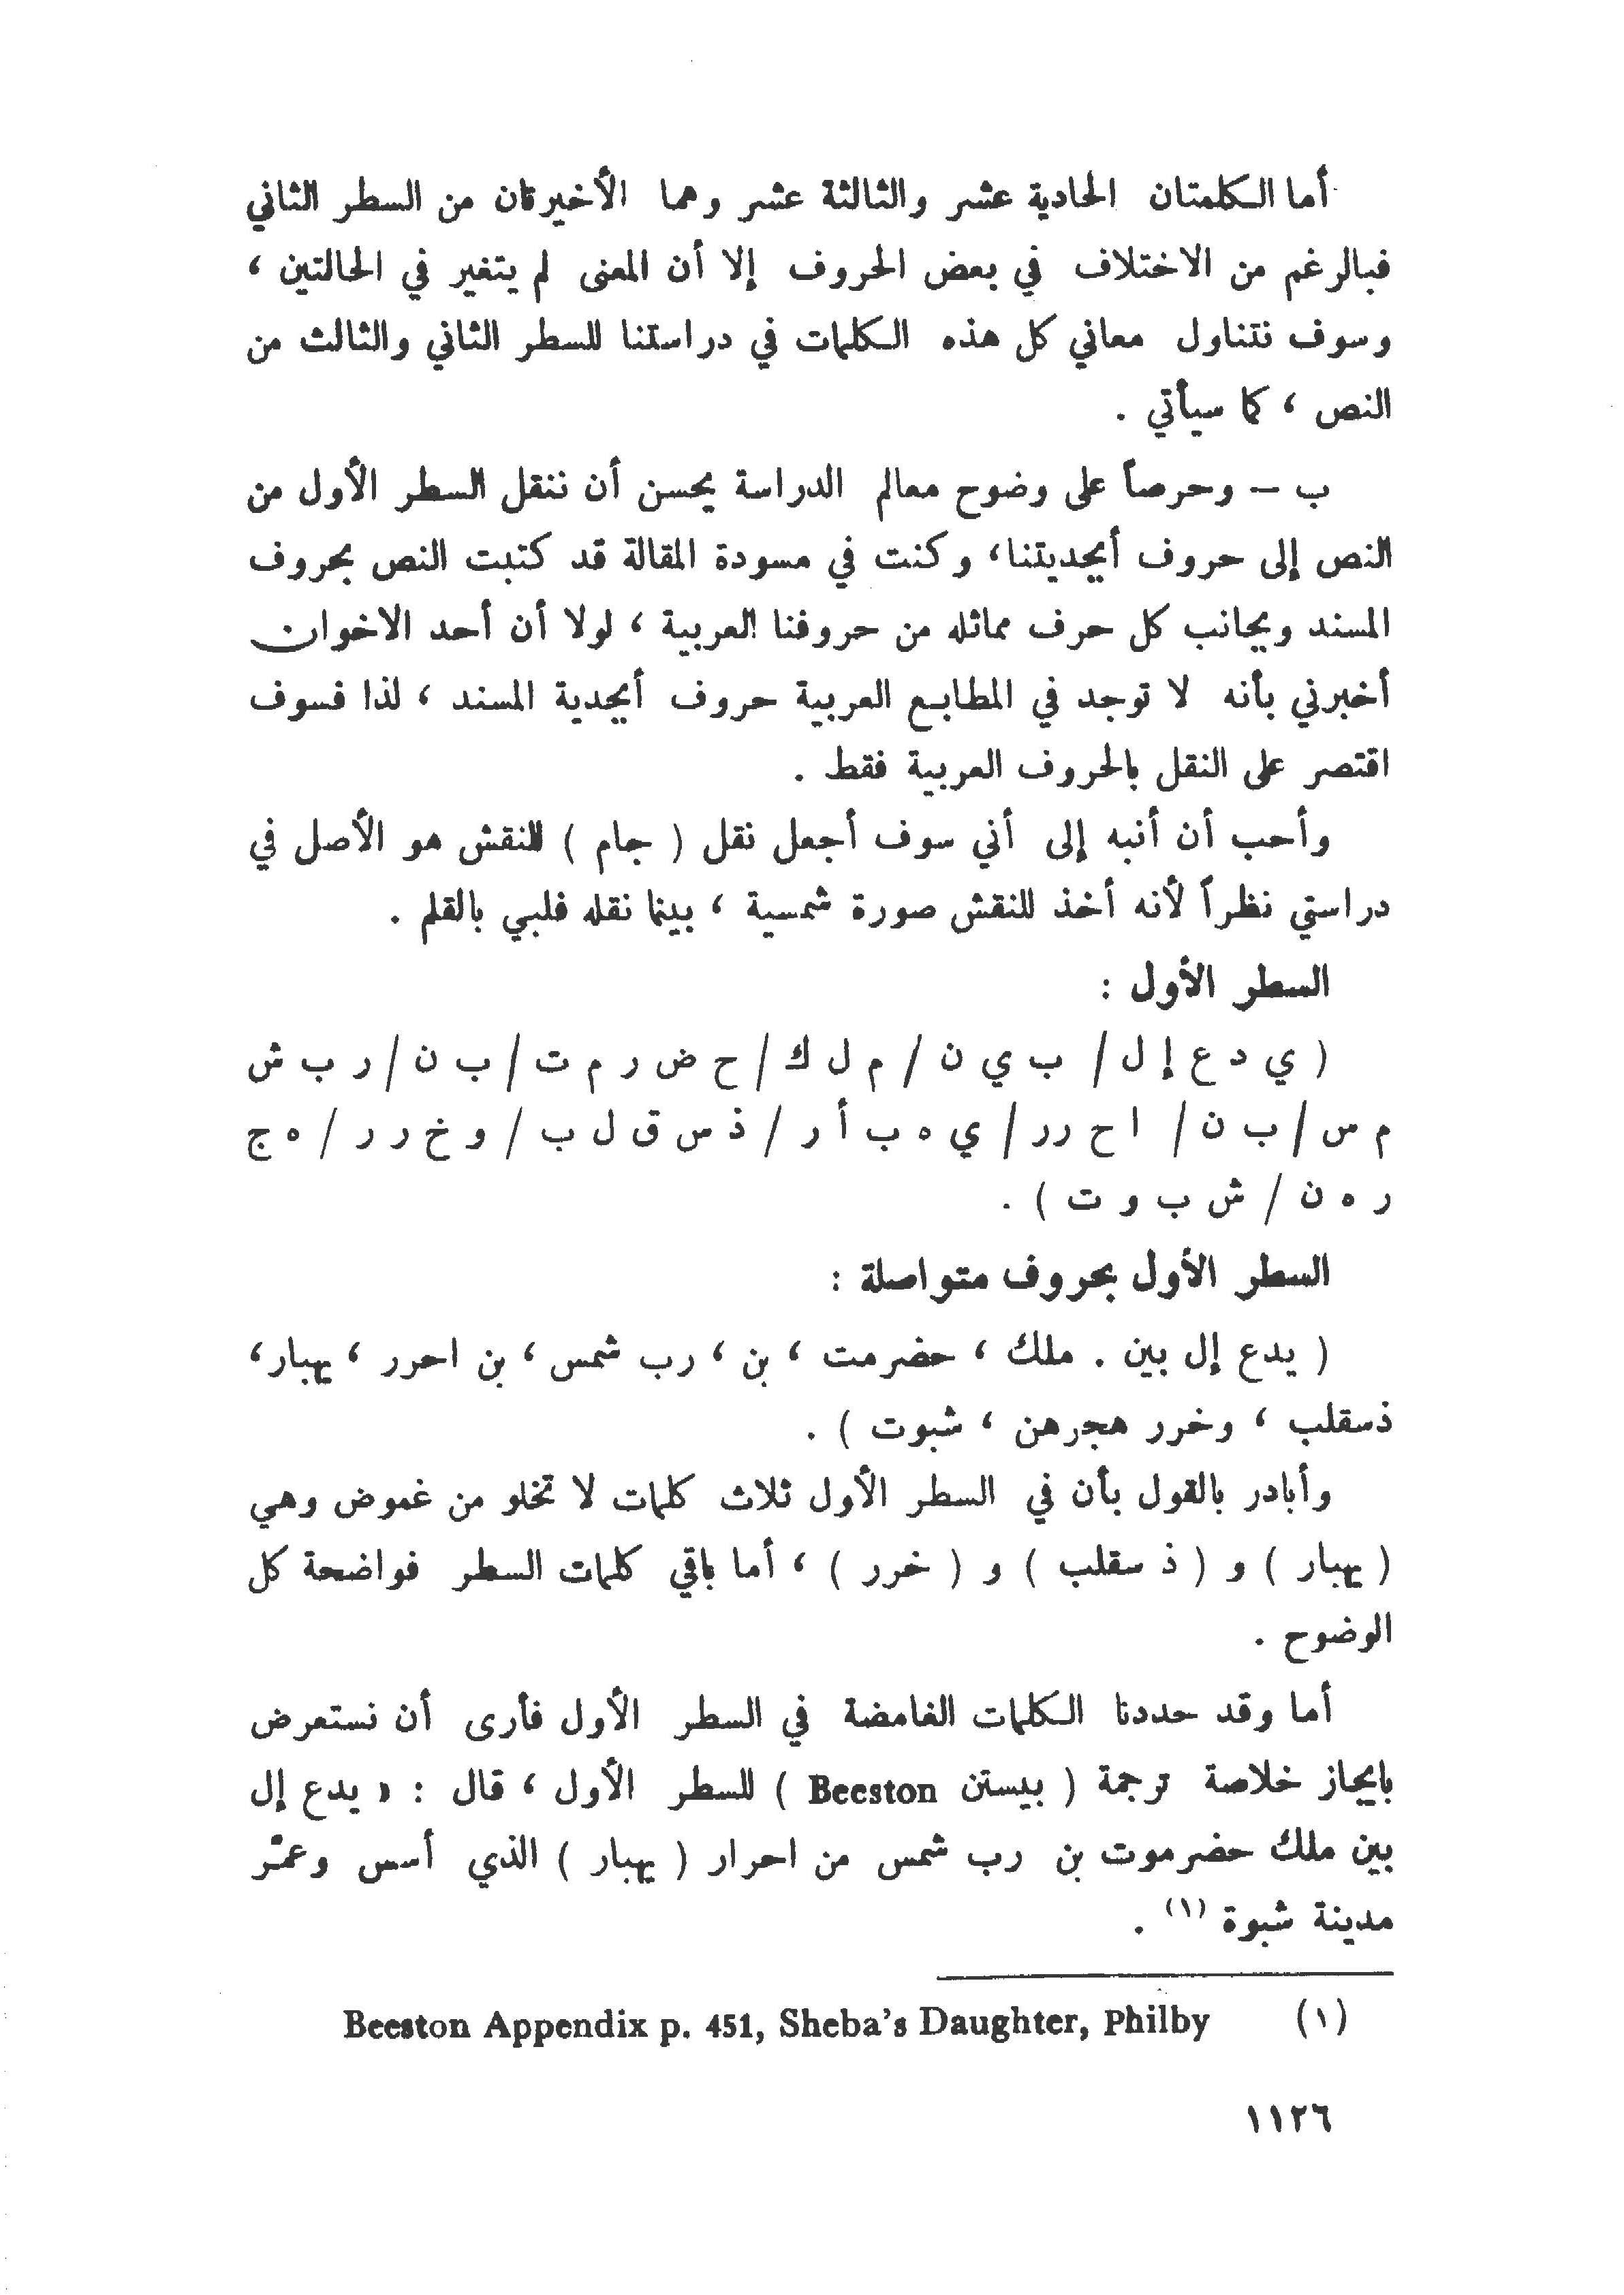 أما الكلمتان الحادية عشر والثالثة عشر وهما الأخيرتان من السطر الثاني
فبالرغم من الاختلاف في بعض الحروف إلا أن المعنى لم يتغير في الحالتين ،
وسوف نتناول معاني كل هذه الكلمات في دراستنا للسطر الثاني والثالث من
النص ، كما سيأتي .
ب – وحرصاً على وضوح معالم الدراسة يحسن أن ننقل السطر الأول من
النص إلى حروف أبجديتنا، وكنت في مسودة المقالة قد كتبت النص بحروف
المسند وبجانب كل حرف مماثله من حروفنا العربية ، لولا أن أحد الاخوان
أخبرني بأنه لا توجد في المطابع العربية حروف أبجدية المسند ، لذا فسوف
اقتصر على النقل بالحروف العربية فقط .
وأحب أن أنبه إلى أني سوف أجعل نقل ( جام ) للنقش هو الأصل في
دراستي نظراً لأنه أخذ للنقش صورة شمسية ، بينما نقله فلبي بالقلم .
السطر الأول :
( ي د ع إ ل / ب ي ن / م ل ك / ح ض ر م ت / ب ن / ر ب ش
م س / ب ن / ا ح رر / ي ه ب أ ر / ذ س ق ل ب / و خ ر ر / ه ج
ر ه ن / ش ب و ت ) .
السطر الأول بحروف متواصلة :
( يدع إل بين . ملك ، حضرمت ، بن ، رب شمس ، بن احرر ، يهبار،
ذسقلب ، وخرر هجرهن ، شبوت ) .
وأبادر بالقول بأن في السطر الأول ثلاث كلمات لا تخلو من غموض وهي
( يهبار ) و ( ذ سقلب ) و ( خرر ) ، أما باقي كلمات السطر فواضحة كل
الوضوح .
أما وقد حددنا الكلمات الغامضة في السطر الأول فأرى أن نستعرض
بايجاز خلاصة ترجمة ( بيستن Beeston ) للسطر الأول ، قال : « يدع إل
بين ملك حضرموت بن رب شمس من احرار ( يهبار ) الذي أسس وعمّر
مدينة شبوة (١) .
(١) Beeston Appendix p. 451, Sheba's Daughter, Philby
١١٢٦